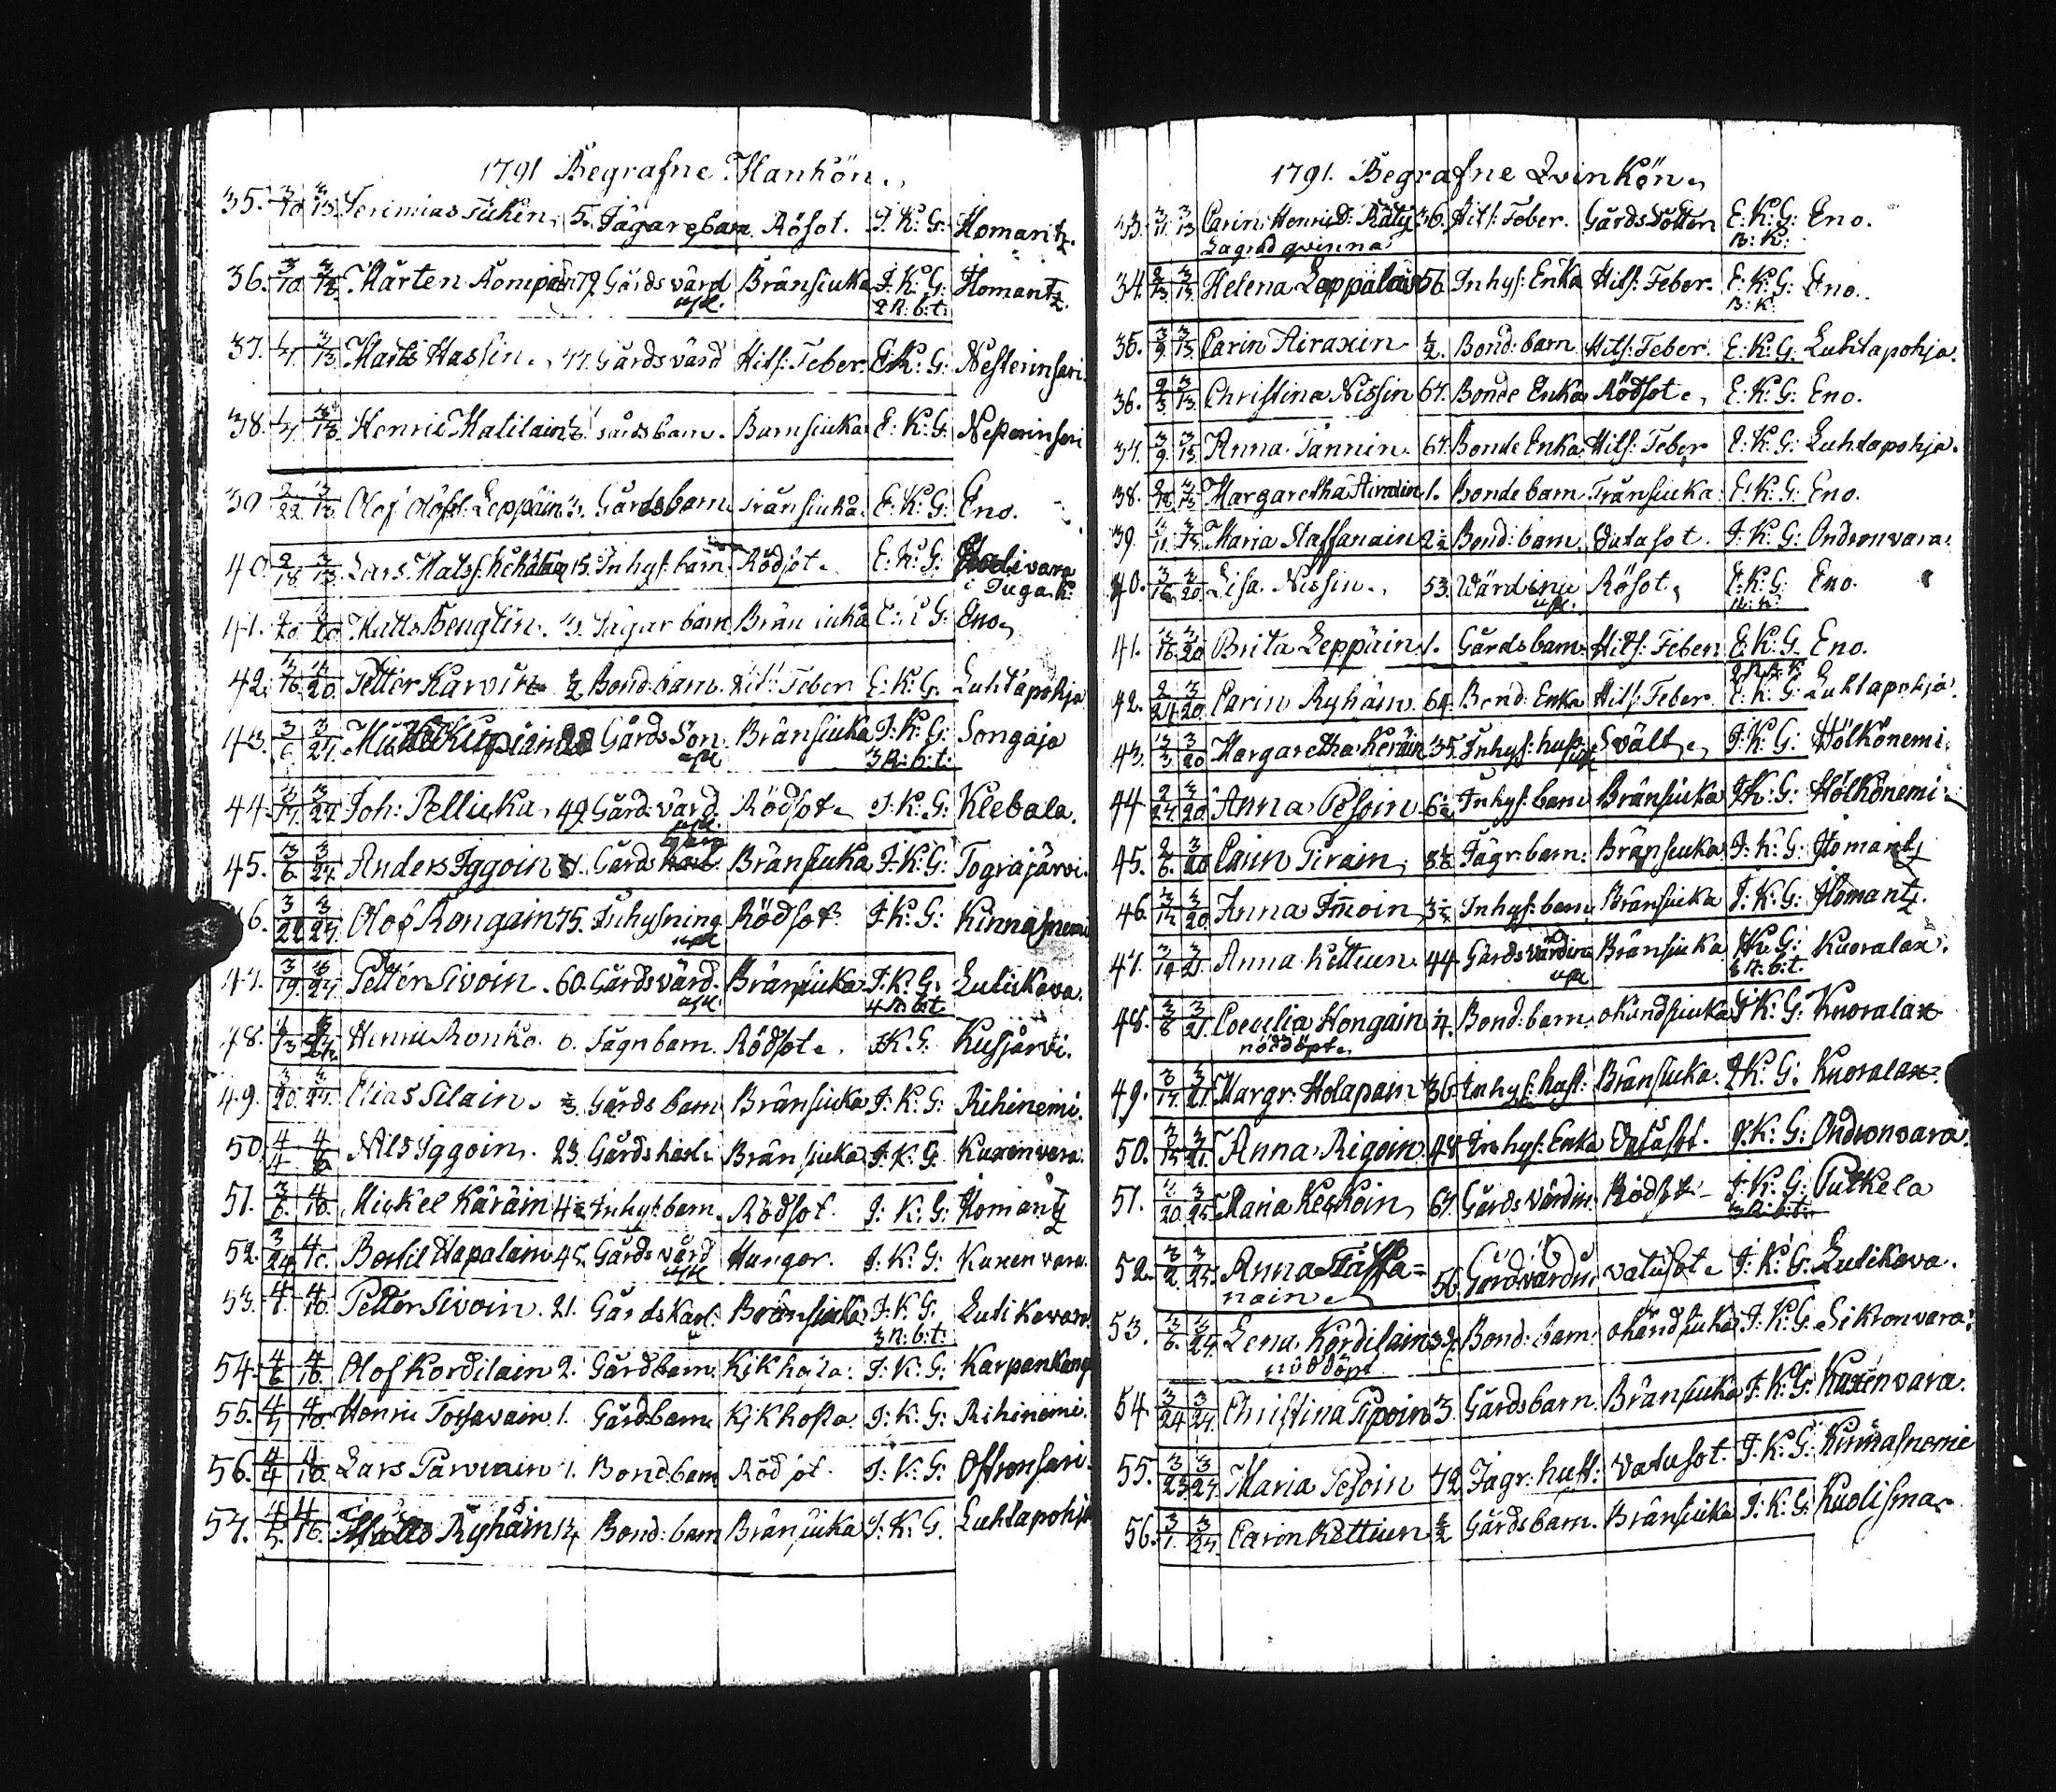 1791 Begrafne Mankön.
35. 3/10 3/13 Jerimias Tickin, 5. Jägarebarn Rösot. I: K: G: Ilomantz.
36. 3/10 3/13 Mårten Romp 79. Gårds värd Bränsiuka I: K: G: Ilomantz.
uſl. 2 R: b: t:
37. 3/13 Matts Hassin. 47. Gårds värd Hits: Feber. E: K: G: Nesterinsari.
38. 3/13 Henric Matilain Gårds barn. Barnsiuka E: K: G: Nesterinsari
39 2/22 3/13 Olof Olofs: Leppäin 3. Gårdsbarn Trånsiuka. E: K: G: Eno.
40. 2/18 3/13 Lars Mats: 15. Inhys: barn Rödsot. E: K: G: vara
i Juga K:
41. 3/20 Matts Benglin. 3. Jägar barn Bränsiuka E: K: G: Eno.
42. 3/16 3/20. Petter Karvin ½ Bond: barn. Hits: Feber E: K: G: Luhtapohja
43. 3/6 3/27. Kupiain 20 Gårds Son Bränsiuka I: K: G: Songaja
uſl 3 R: b: t:
44. 3/17. 3/27 Joh: Pellicka, 49. Gård: värd Rödsot. I: K: G: Klebala.
uſl.
45. 3/6. 3/27. Anders Iggoin Gårds Bränsiuka I: K: G: Tograjärvi.
46. 3/22 3/27. Olof Rongain 75. Inhysning Rödsot I: K: G: Kinnasnemi
uſl
47. 3/19. 3/27 Petter Sivoin. 60. Gårds värd. Bränsiuka I: K: G: Lutikava.
uſl 4 R: b: t
48. 3/13 3/27 Henric Ronko. 6. Jägr barn. Rödsot. I: K: G. Kusjärvi.
49. 3/20. 3/27. Elias Silain. Gårds barn Bränsiuka I: K: G: Rihinemi.
50. 4/1 4/10 Nils Iggoin. 23. Gårds karl: Bränsiuka I: K: G. Kuxenvara.
51. 3/6. 4/10. Mickel Käräin 4½ Inhys: barn. Rödsot. I: K: G: Ilomantz
52. 3/24 4/10. Bertil Hapalain 45. Gårds värd Hunger. I: K: G: Kuxen vara.
uſl
53. 4/1. 4/10. Petter Sivoin. 21. Gårds Karl. Bränsiuka I: K: G. Lutikavara.
3 R: b: t:
54. 4/6 4/10. Olof Kordilain 2. Gårdbarn. Kikhosta: I: K: G: Karpankang
55. 4/5 4/10. Henric Tossavain. 1. Gårdbarn Kikhosta. I: K: G: Rihinemi.
56. 4/4 4/10. Lars Parviain 1. Bond: barn Rödsot. I: K: G: Oftronsari.
57. 4/5. 4/10. Matts Ryhäin Bond: barn Bränsiuka I: K: G. Luhtapohja
1791. Begrafne Qvinkön.
33. 3/11. 3/13 Carin Henrics D: Räty 36. Hits: Feber. Gårds Dotter E: K: G: Eno.
Lägrad qvinna. B: K:
34. 2/13 3/13. Helena Leppälain 56 Inhys: Enka Hits: Feber. E: K: G: Eno.
B: K:
35. 3/9 3/13 Carin Airaxin ½. Bond: barn Hits: Feber. E: K: G. Luhtapohja.
36. 2/3 3/13. Christina Nissin 67. Bonde Enka Rödsot. E: K: G: Eno.
37. 3/9. 3/13. Anna Tannin. 67. Bonde Enka. Hits: Feber E: K: G: Luhtapohja.
38. 3/13. Margaretha Airaxin 1. Bonde barn Trånsiuka: E: K: G: Eno.
39. 3/11. 3/13 Maria Staffanain 2½ Bond: barn. Vatusot. I: K: G: Ondronvara.
40. 3/16 3/20. Lisa Nissin. 53. Värdina Rösot. E: K: G: Eno.
uſl. B: K:
41. 3/16. 3/20 Brita Leppäin 1. Gårds barn Hits: Feber E: K: G. Eno.
42. 2/27 3/20. Carin Ryhäin 64. Bond: Enka Hits: Feber E: K: G: Luhtapohja.
43. 3/3 3/20 Margaretha Keräin 35. Inhys: hust: Svält. I: K: G: Hölkönemi.
44 2/27. 3/20. Anna Pesoin 6½ Inhys: barn Bränsiuka I: K: G: Hölkönemi.
45. 2/6. 3/20 Carin Pirain, 8½ Jägr: barn: Bränsiuka I: K: G: Ilomantz
46. 3/12 3/20. Anna Im̄oin, 3½ Inhys: barn Bränsiuka I: K: G: Ilomantz.
47. 3/19 3/21. Anna Kettun. 44. Gårds värdina Bränsiuka I: K: G: Kuoralax.
uſl R: b: t.
48. 3/8 3/21. Coecilia Hongain Bond: barn. okänd siuka I: K: G: Kuoralax
nöddöpt.
49. 3/17. 3/21. Margr: Holapain 36 Inhys: hust: Bränsiuka. I: K: G: Kuoralax.
50. 3/15 3/21. Anna Rigoin 48 Inhys: Enka Vatusot. I: K: G: Ondronvara.
51. 3/20. 3/25. Maria Keskoin, 67. Gårds Värdin. Rödsot I: K: G: Putkela
3 R: b: t:
52. 3/2. 3/25. Anna Staffa= 56. Gårdvärdin vatusot. I: K: G: Lutikava.
nain.
53. 3/6. 3/27. Lena Kordilain Bond: barn: okändsiuka I: K: G. Sikronvara.
nöddöpt
54. 3/24 3/27. Christina Pipoin 3. Gårdsbarn. Bränsiuka I: K: G: Kuxenvara.
55. 3/23 3/27 Maria Pesoin 72. Jägr: hust: Vatusot. I: K: G: Kinnasnemie
56. 3/1. 3/27. Carin Kettiun ½ Gårdsbarn. Bränsiuka I: K: G: Kuolisma.